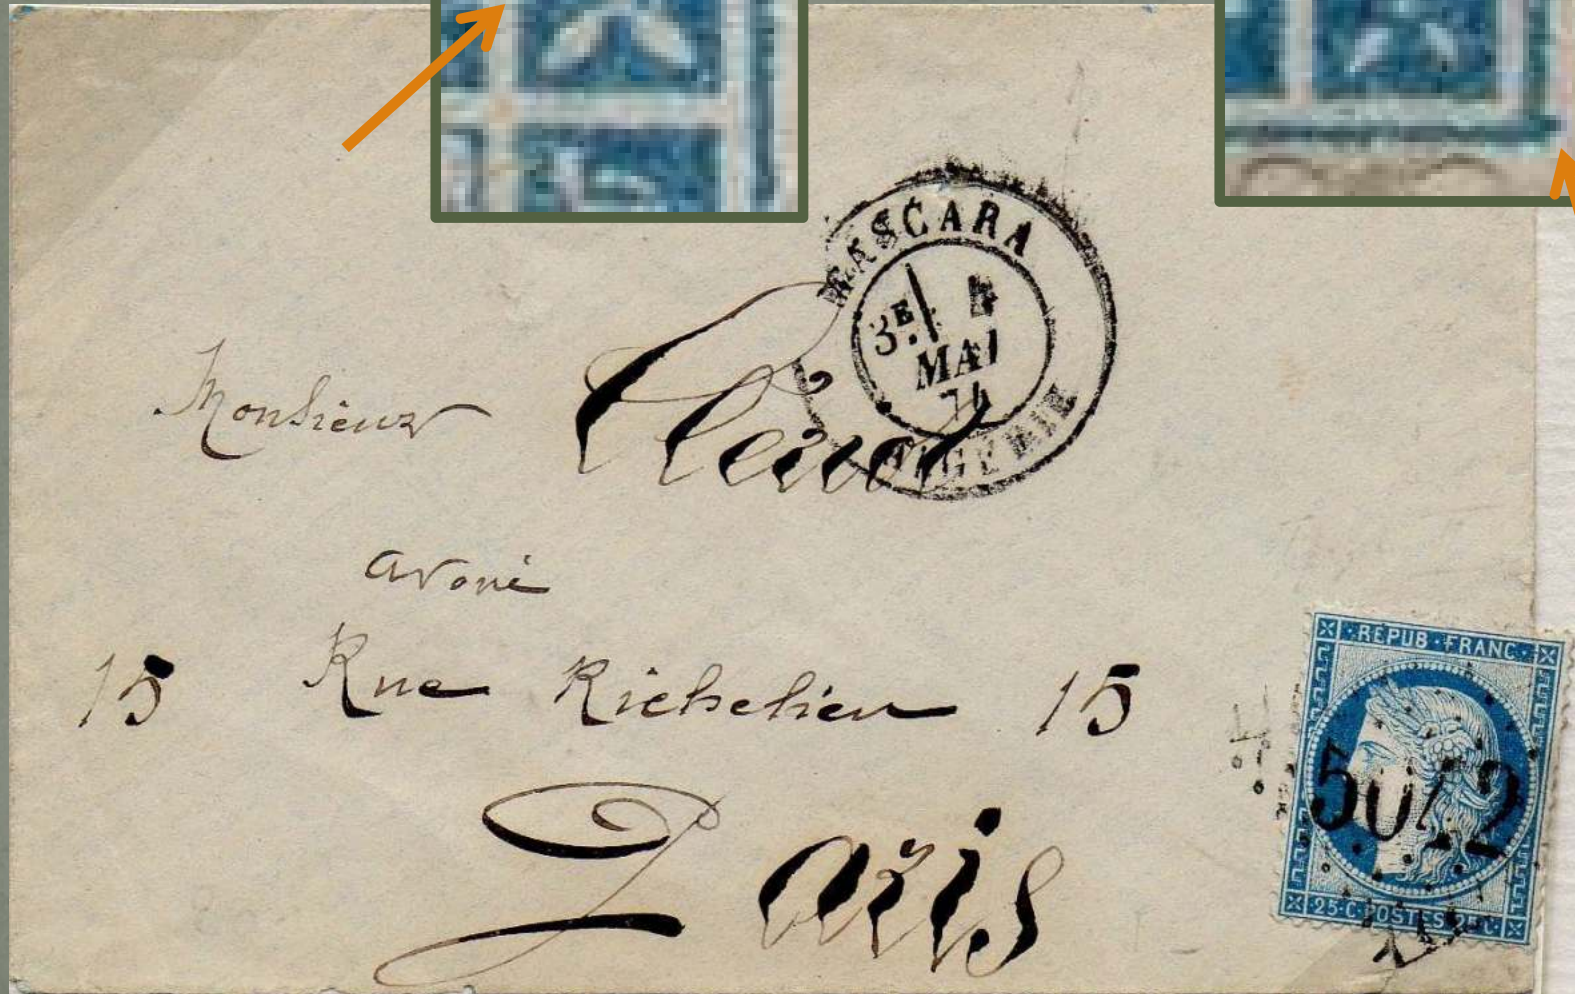 MASCARA
3E 4
MAI
74
ALGERIE
Monsieur
avoué
15 Rue Richelieu 15
Paris
REPUB·FRANC·
5042
·25·C·POSTES·25·C·